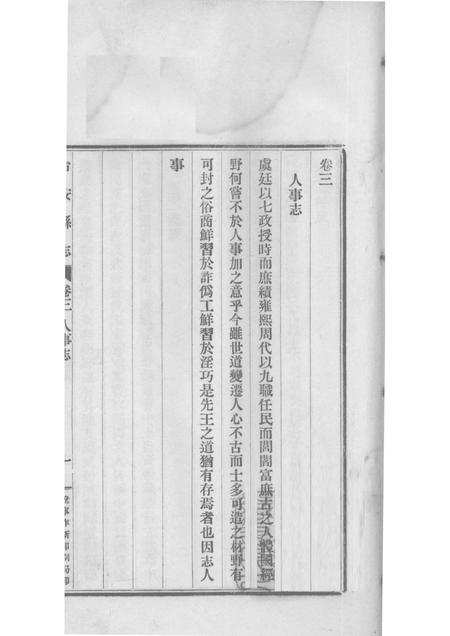 卷三
人事志
虞廷以七政授時而庶績雍熙周代以九職任民而閭閻富庶古之人體國經
野何嘗不於人事加之意乎今雖世道變遷人心不古而士多可造之材野有
可封之俗商鮮習於詐僞工鮮習於淫巧是先王之道猶有存焉者也因志人
事
安縣志 卷三 人事志 一